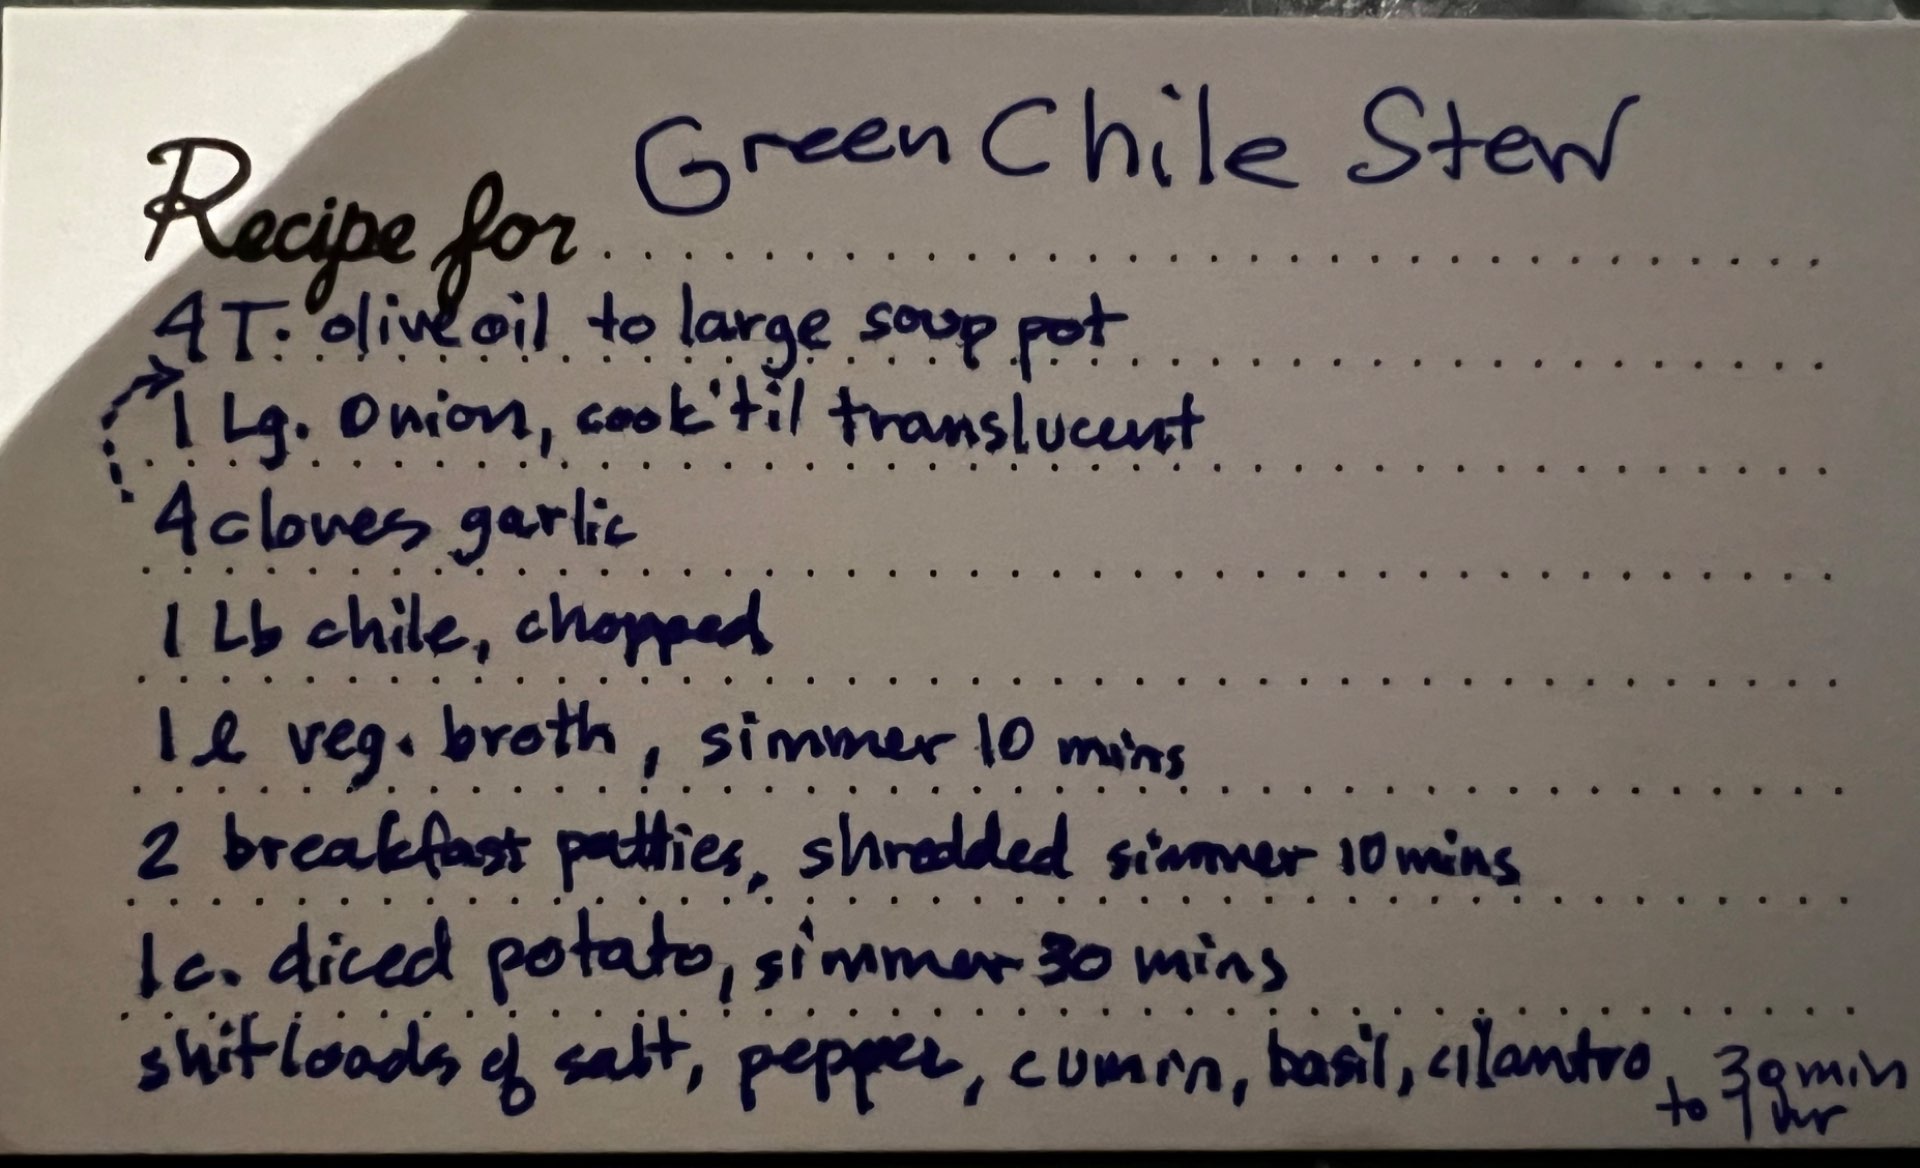 Recipe for Green Chile Stew
4 T. olive oil to large soup pot
1 Lg. Onion, cook 'til translucent
4 cloves garlic
1 Lb chile, chopped
1 l veg. broth, simmer 10 mins
2 breakfast patties, shredded simmer 10 mins
1 c. diced potato, simmer 30 mins
shitloads of salt, pepper, cumin, basil, cilantro, 30 min
to 1 hr